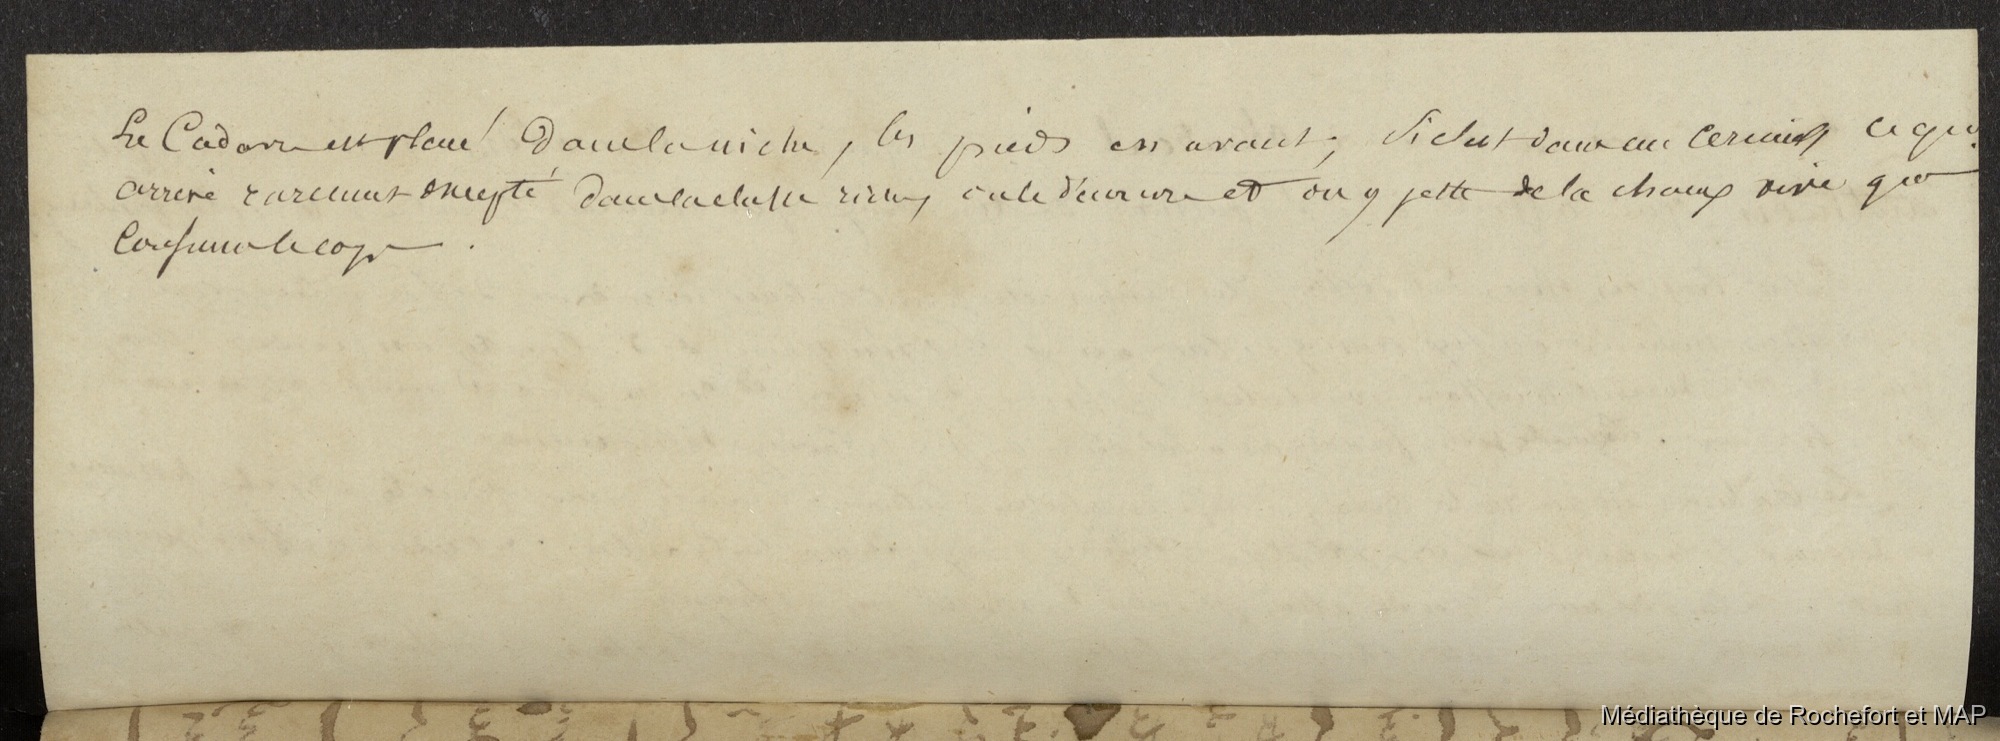 Le Cadavre est placé Dans la niche, les pieds en avant; Si c'est dans un Cercueil ce qui
arrive rarement excepté dans la classe riche, on le découvre et on y jette de la chaux vive qui
Consume le corps.
Médiathèque de Rochefort et MAP